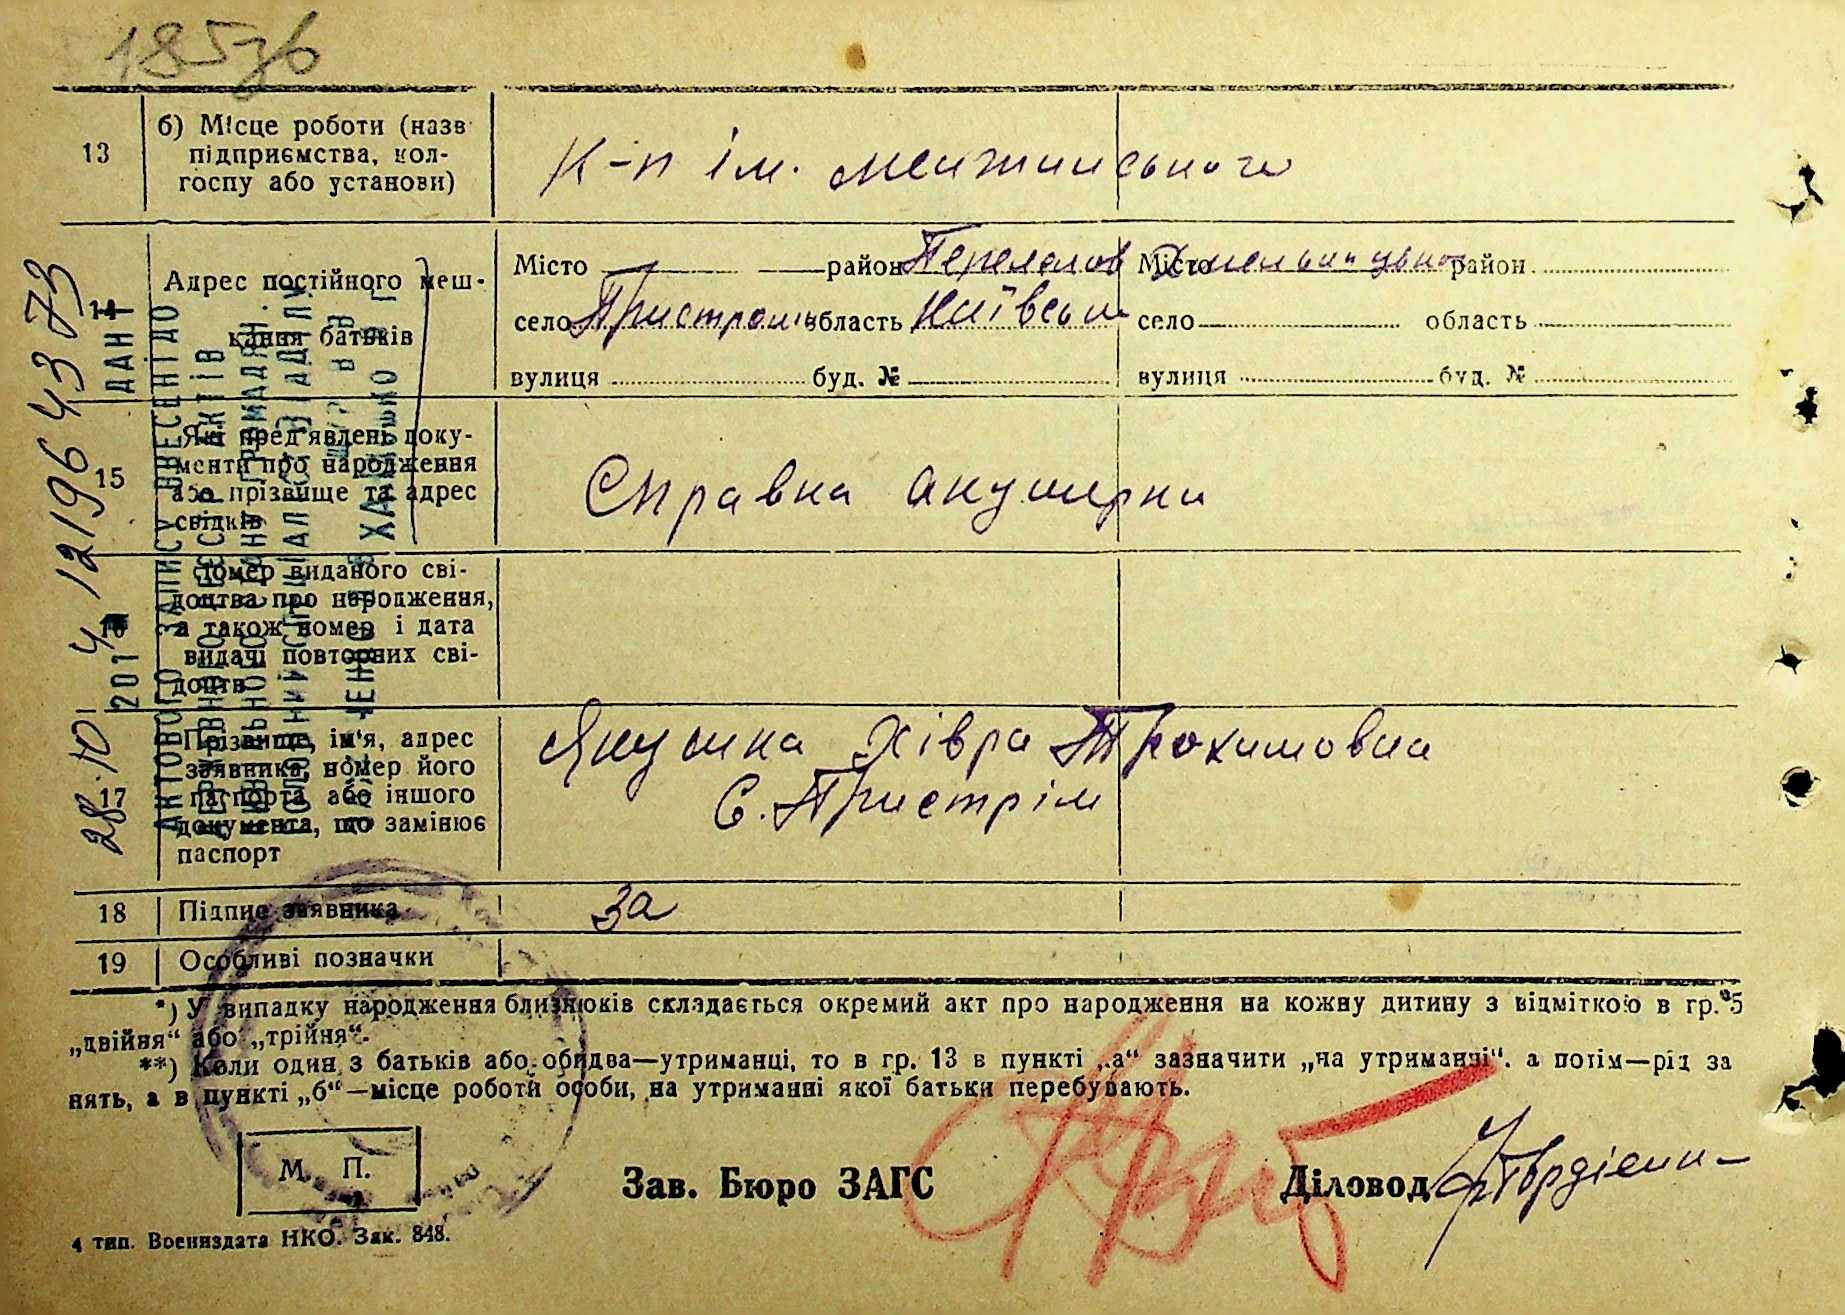 185зв
13
б) Місце роботи (назв
підприємства, кол-
госпу або установи)
К-п ім. Менжинського
14
Адрес постійного меш-
кання батьків
Місто район Переяслов Місто Хмельницьког район
село Пристроми область Київськ село область
вулиця буд. № вулиця буд. №
15
Які пред'явлені доку-
менти про народження
або прізвище та адрес
свідків
Справка акушерки
16
Номер виданого сві-
доцтва про народження,
а також номер і дата
видачі повторних сві-
доцтв
17
Прізвище, ім'я, адрес
заявника, номер його
паспорта або іншого
документа, що замінює
паспорт
Якушка Хівра Трохимовна
С. Пристрім
18 Підпис заявника За
19 Особливі позначки
*) У випадку народження близнюків складається окремий акт про народження на кожну дитину з відміткою в гр. 5
„двійня“ або „трійня“.
**) Коли один з батьків або обидва—утриманці, то в гр. 13 в пункті „а“ зазначити „на утриманні“. а потім—рід за
нять, а в пункті „б“—місце роботи особи, на утриманні якої батьки перебувають.
М. П.
Зав. Бюро ЗАГС
Діловод
4 тип. Воениздата НКО. Зак. 848.
28.10 4 1219643 73
201
ДАНІ
АКТОВОГО ЗАПИСУ ВНЕСЕНІ ДО